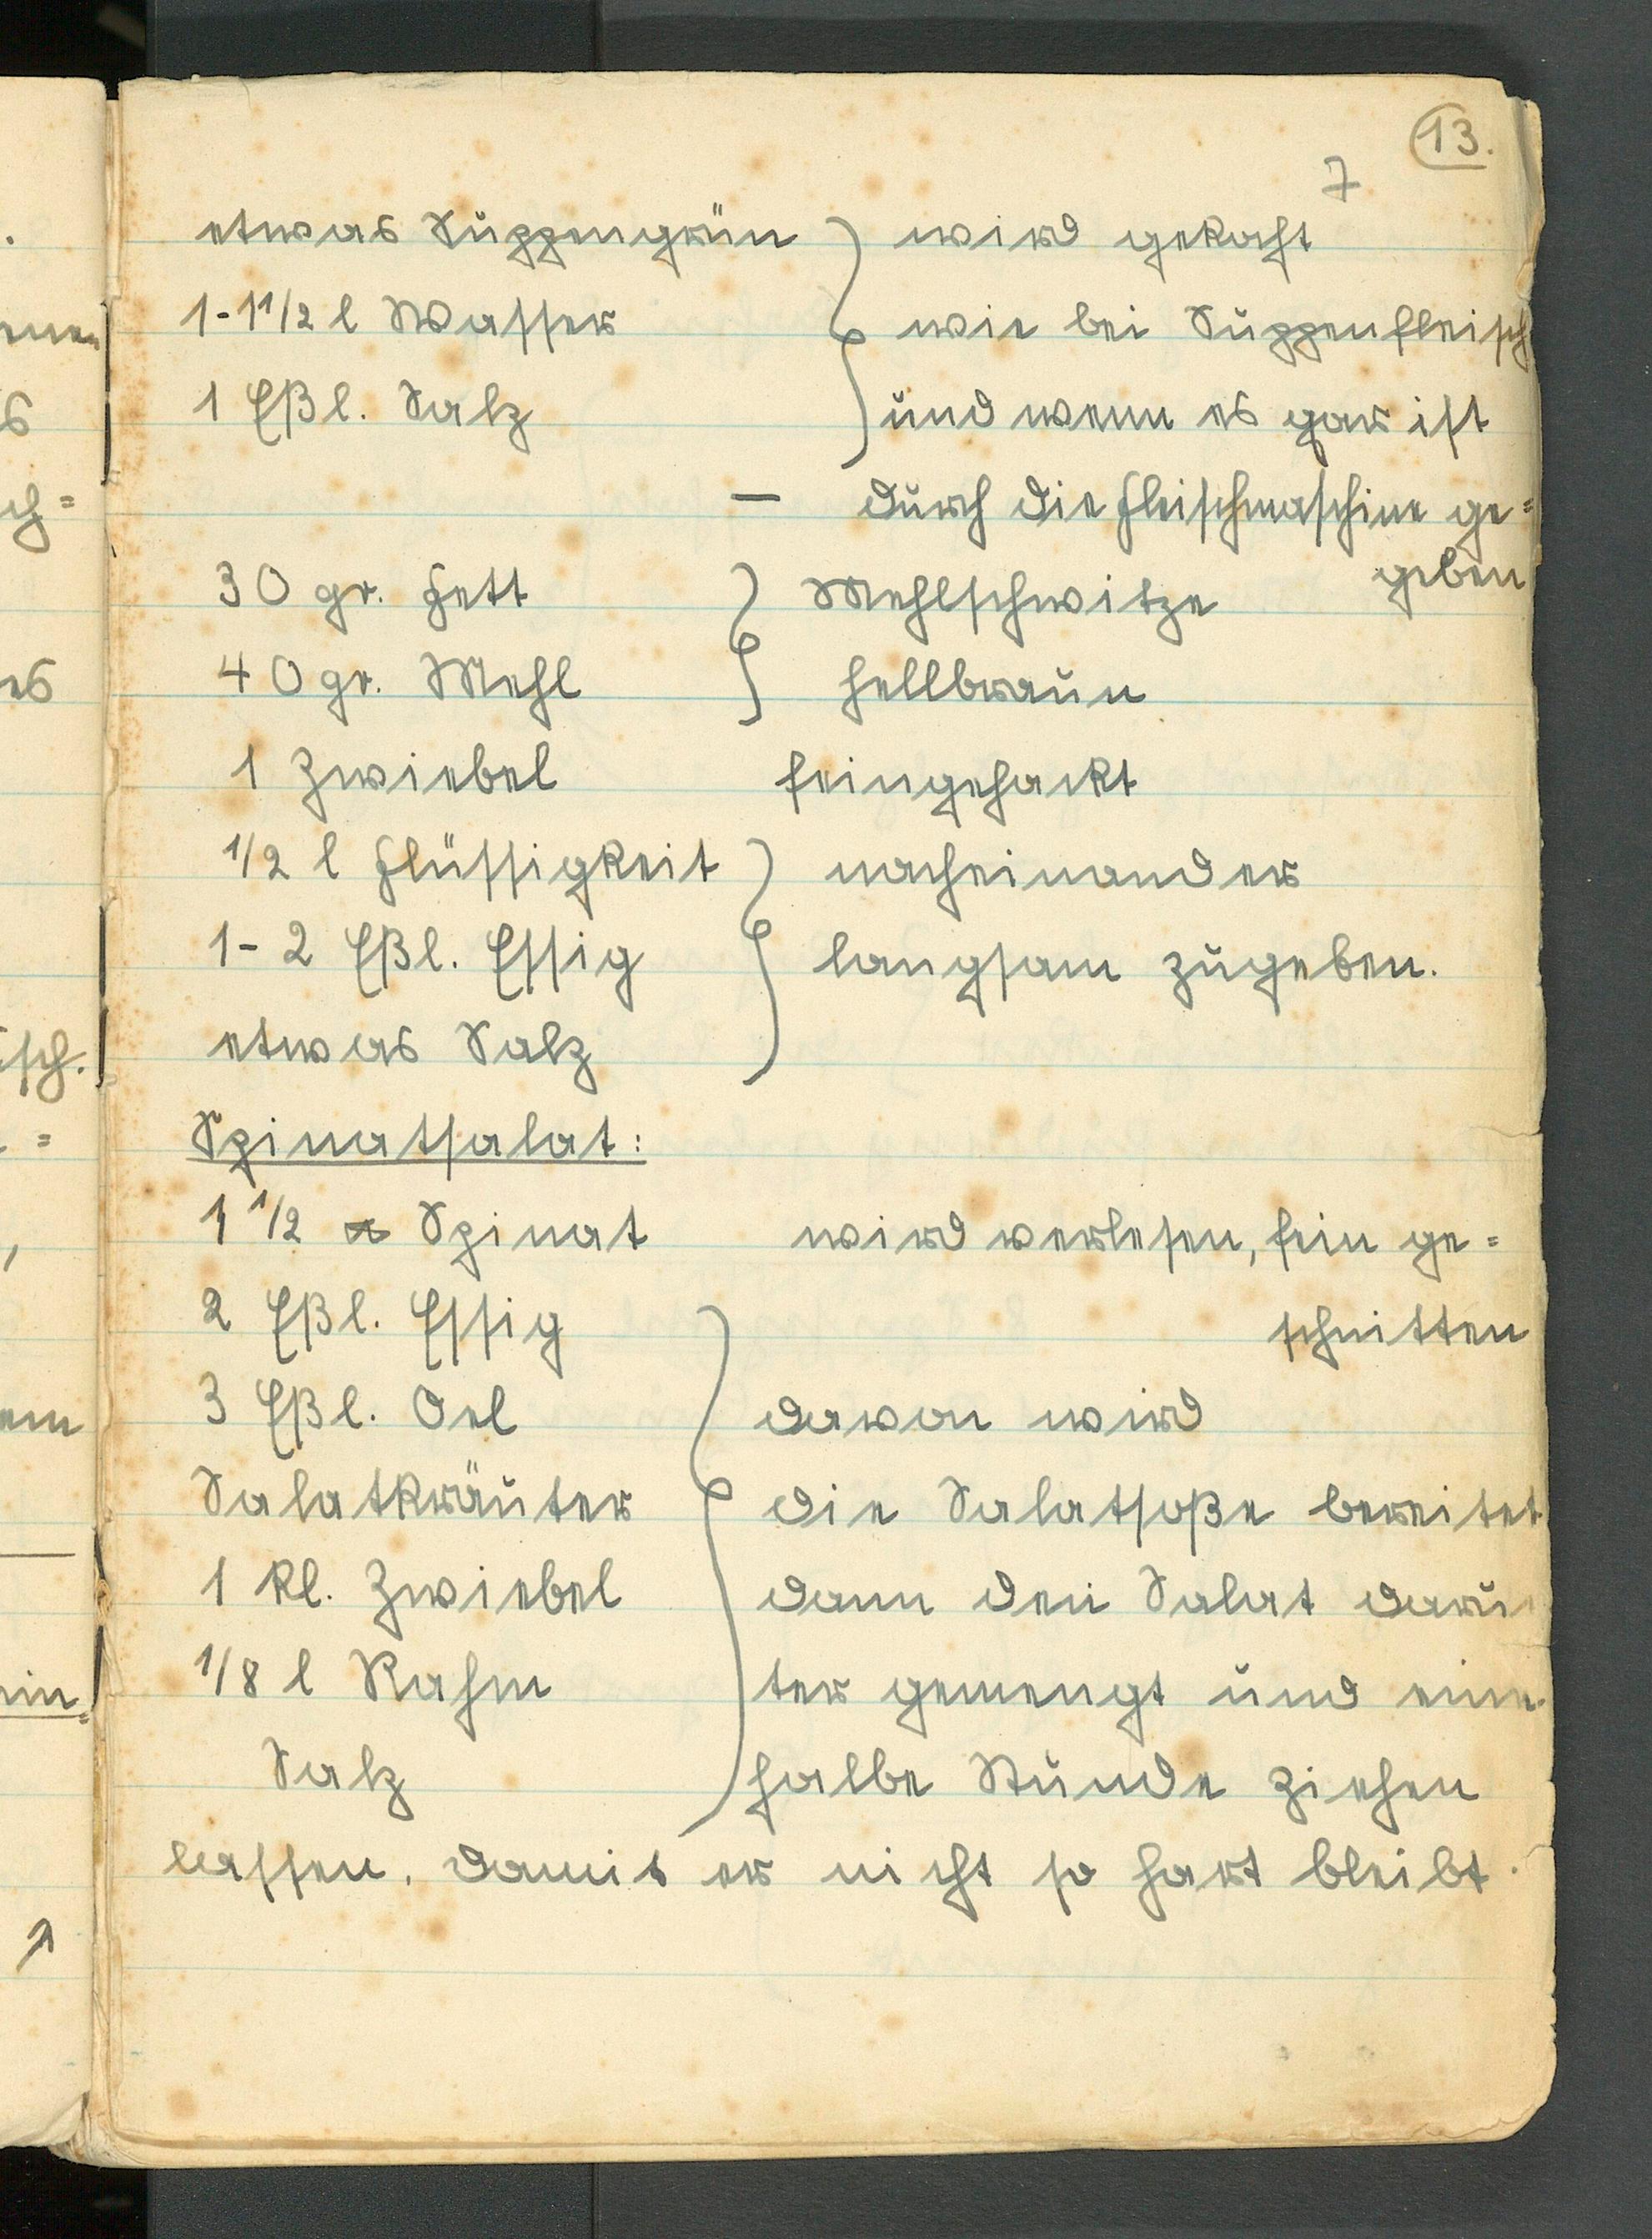 13.
7
etwas Suppengrün wird gekocht
1-1 1/2 l Wasser wie bei Suppenfleisch
1 Eßl. Salz und wenn es gar ist
— durch die Fleischmaschine ge=
geben
30 gr. Fett Mehlschwitze
40 gr. Mehl hellbraun
1 Zwiebel feingehackt
1/2 l Flüssigkeit nacheinander
1-2 Eßl. Essig langsam zugeben.
etwas Salz
Spinatsalat:
1 1/2 ℔ Spinat wird verlesen, fein ge=
2 Eßl. Essig schnitten
3 Eßl. Oel davon wird
Salatkräuter die Salatsoße bereitet
1 kl. Zwiebel dann den Salat daru
1/8 l Rahm ter gemengt und eine
Salz halbe Stunde ziehen
lassen, damit er nicht so hart bleibt.